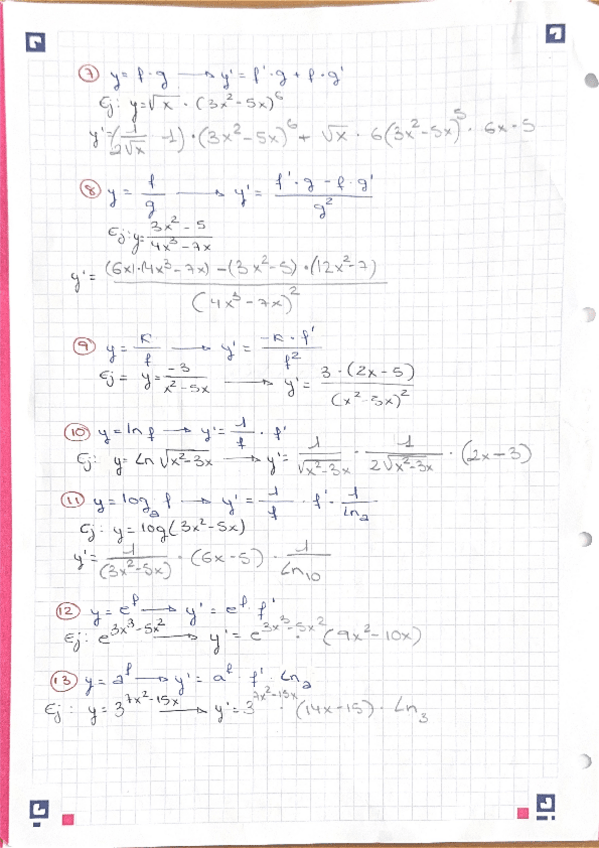 ⑦ y = f · g → y' = f' · g + f · g'
Ej: y = √x · (3x² - 5x)⁶
y' = (1/2√x · 1) · (3x² - 5x)⁶ + √x · 6(3x² - 5x)⁵ · 6x - 5
⑧ y = f/g → y' = (f' · g - f · g')/g²
Ej: y = (3x² - 5)/(4x³ - 7x)
y' = ((6x) · (4x³ - 7x) - (3x² - 5) · (12x² - 7))/(4x³ - 7x)²
⑨ y = K/f → y' = (-K · f')/f²
Ej = y = -3/(x² - 5x) → y' = (3 · (2x - 5))/(x² - 5x)²
⑩ y = ln f → y' = 1/f · f'
Ej: y = Ln √(x² - 3x) → y' = 1/√(x² - 3x) · 1/(2√(x² - 3x)) · (2x - 3)
⑪ y = logₐ f → y' = 1/f · f' · 1/lnₐ
Ej: y = log(3x² - 5x)
y' = 1/(3x² - 5x) · (6x - 5) · 1/Ln₁₀
⑫ y = e^f → y' = e^f · f'
Ej: e^(3x³ - 5x²) → y' = e^(3x³ - 5x²) · (9x² - 10x)
⑬ y = a^f → y' = a^f · f' · Lnₐ
Ej: y = 3^(7x² - 15x) → y' = 3^(7x² - 15x) · (14x - 15) · Ln₃